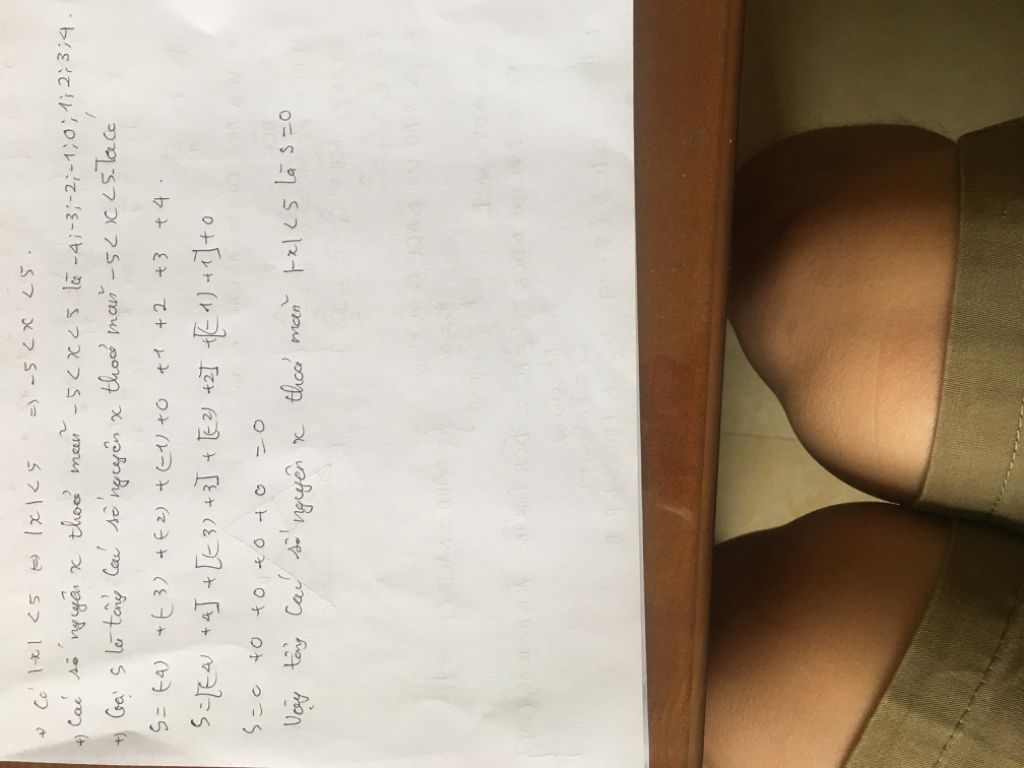 +) Có |-x| < 5 ⇔ |x| < 5 => -5 < x < 5.
+) Các số nguyên x thoả mãn -5 < x < 5 là -4; -3; -2; -1; 0; 1; 2; 3; 4.
+) Gọi S là tổng các số nguyên x thoả mãn -5 < x < 5. Ta có
S = (-4) + (-3) + (-2) + (-1) + 0 + 1 + 2 + 3 + 4.
S = [(-4) + 4] + [(-3) + 3] + [(-2) + 2] + [(-1) + 1] + 0
S = 0 + 0 + 0 + 0 + 0 = 0
Vậy tổng các số nguyên x thoả mãn |-x| < 5 là S = 0